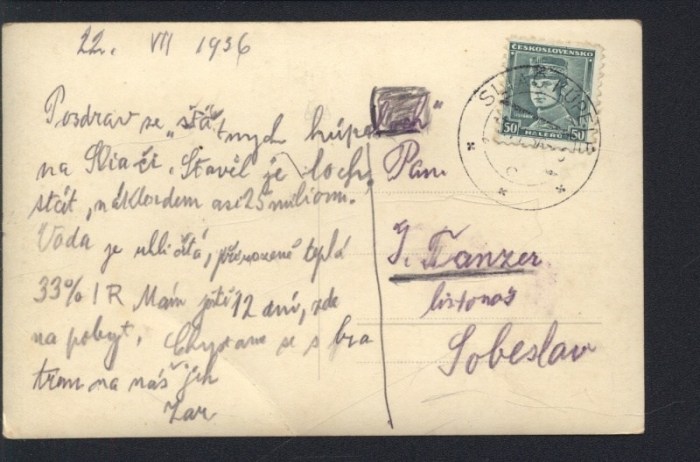 22. VII 1936
Pozdrav ze „stát
na Sliači. Stavěl je
stát, nákladem asi 25 milionů.
Voda je uhličitá, přirozeně teplá
33% Mám ještě 12 dní, zde
na pobyt. Chystám se s bra
trem na náš jih
ČESKOSLOVENSKO
50 HALÉŘŮ 50
SLIAČ KÚPELE
Pan
J. Tanzer
listonoš
Soběslav